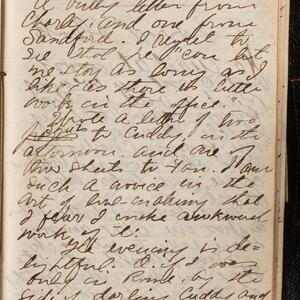 a letter from
Charley, and one from
Sandford. I regret to
see that he "can let
me stay as long as I
like as there is little
work in the office."
I wrote a letter of two
sheets to Cuddy in the
afternoon, and one of
two sheets to Fan. I am
such a novice in the
art of love-making that
I fear I make awkward
work of it.
The evening is de-
lightful. O if I was
only in Rome, by the
side of darling Cuddy and